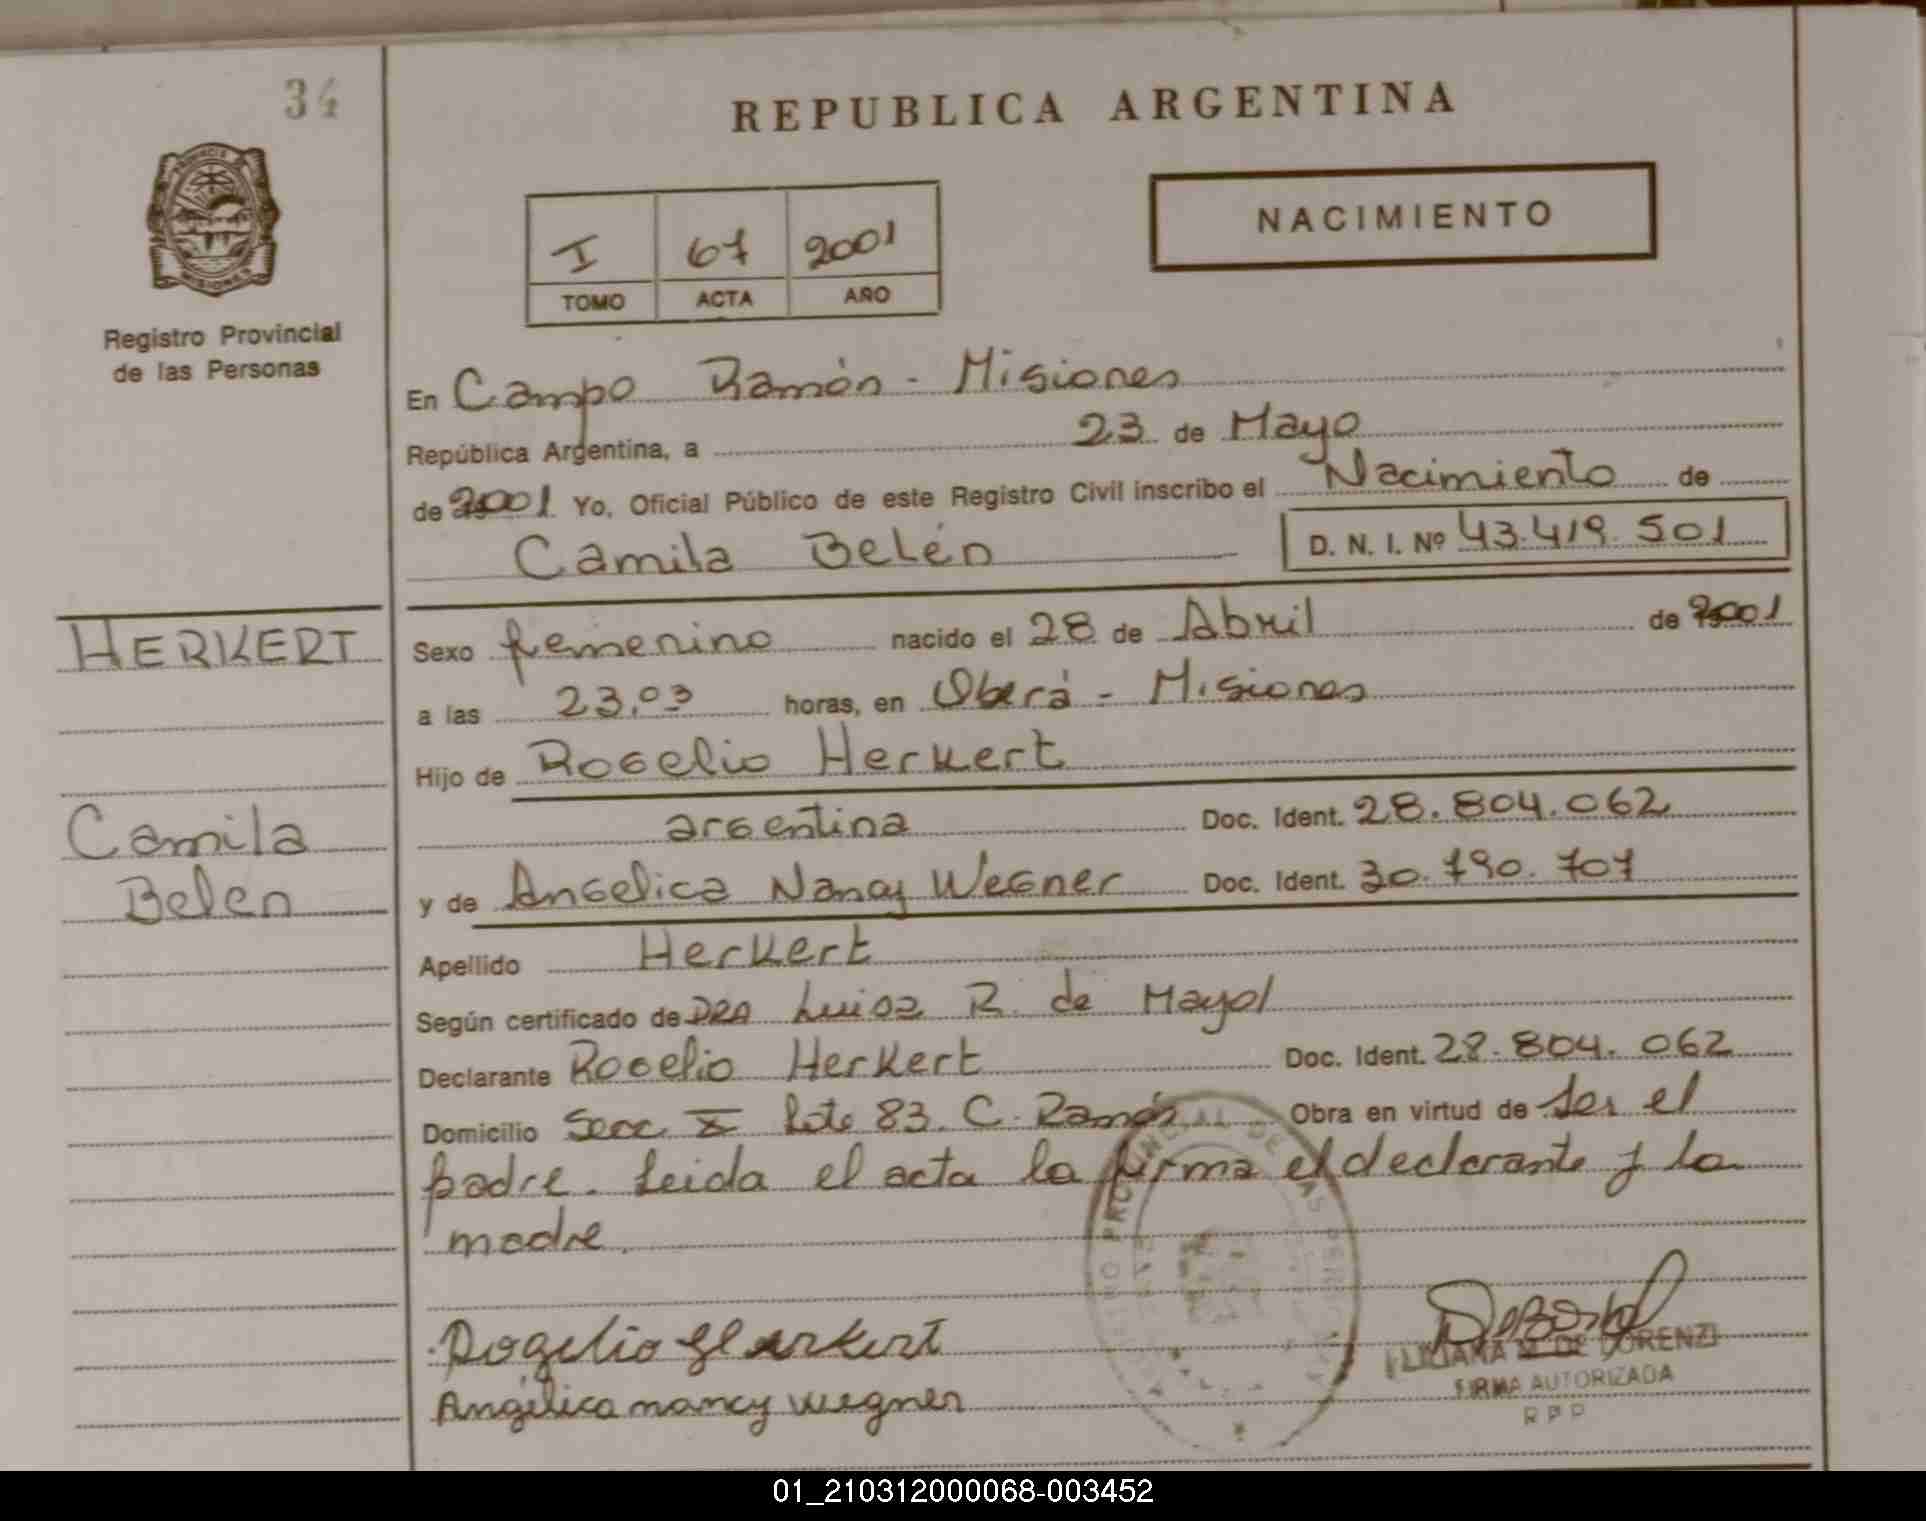 34
REPUBLICA ARGENTINA
PROVINCIA DE
MISIONES
NACIMIENTO
I 67 2001
TOMO ACTA AÑO
Registro Provincial
de las Personas
En Campo Ramón - Misiones
República Argentina, a 23 de Mayo
de 2001 Yo, Oficial Público de este Registro Civil inscribo el Nacimiento de
Camila Belén D. N. I. Nº 43.419.501
HERKERT
Sexo femenino nacido el 28 de Abril de 2001
a las 23,03 horas, en Oberá - Misiones
Hijo de Rogelio Herkert
Camila
argentina Doc. Ident. 28.804.062
Belen
y de Angelica Nancy Wegner Doc. Ident. 30.790.707
Apellido Herkert
Según certificado de DRA Luisa R. de Mayol
Declarante Rogelio Herkert Doc. Ident. 28.804.062
Domicilio Secc X Lote 83. C. Ramón Obra en virtud de ser el
padre. Leida el acta la firma el declarante y la
madre.
Rogelio Herkert
Angélica nancy wegner
LILIANA M. DE LORENZI
FIRMA AUTORIZADA
R P P
01_210312000068-003452